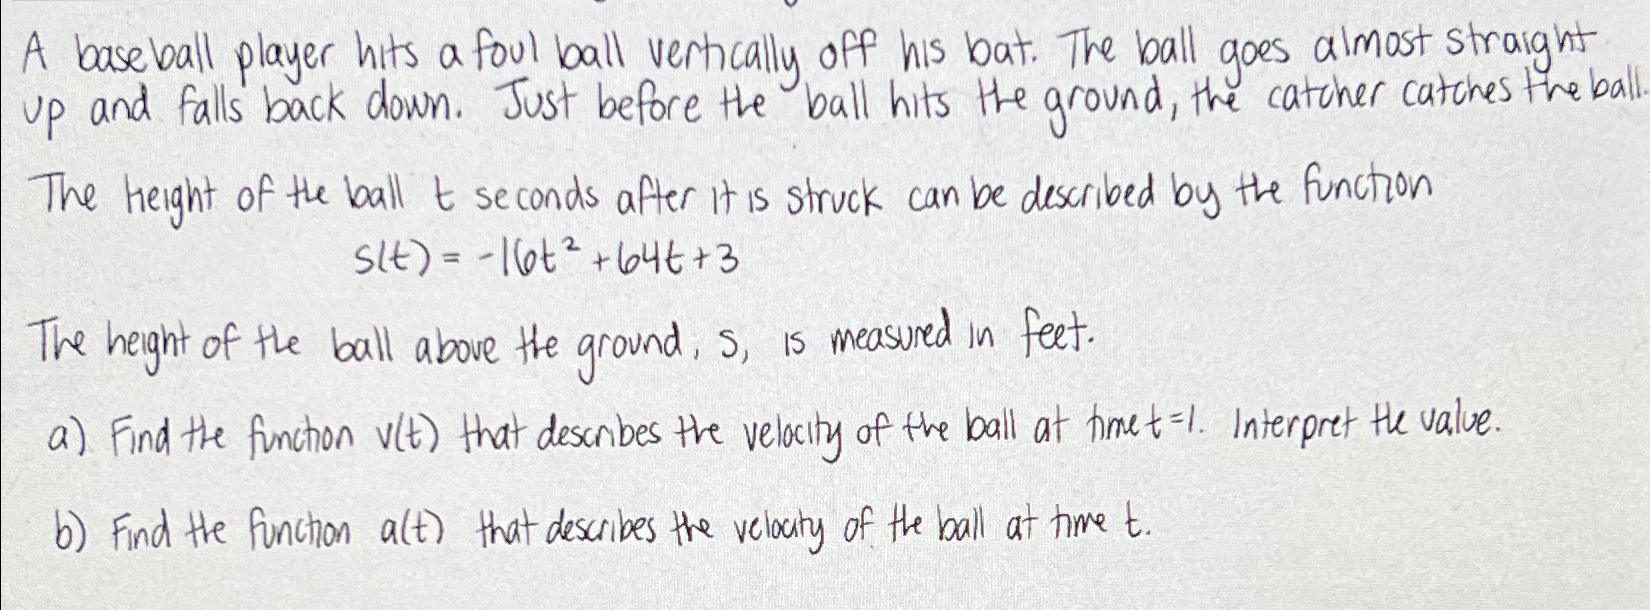 A baseball player hits a foul ball vertically off his bat. The ball goes almost straight
up and falls back down. Just before the ball hits the ground, the catcher catches the ball.
The height of the ball t seconds after it is struck can be described by the function
s(t) = -16t² + 64t + 3
The height of the ball above the ground, s, is measured in feet.
a) Find the function v(t) that describes the velocity of the ball at time t=1. Interpret the value.
b) Find the function a(t) that describes the velocity of the ball at time t.